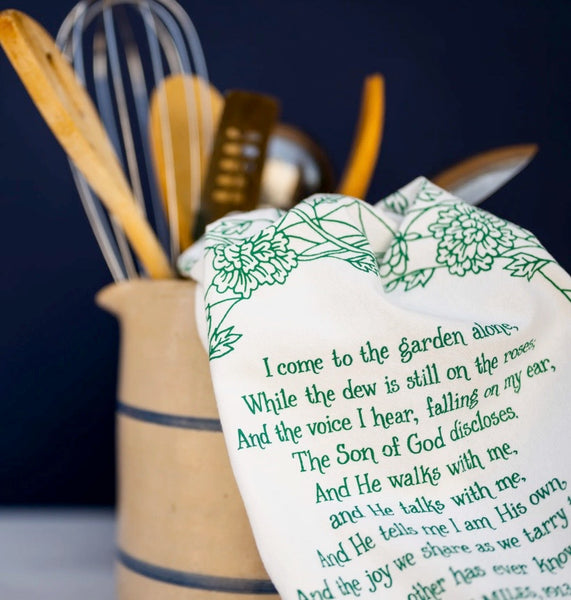 I come to the garden alone,
While the dew is still on the roses
And the voice I hear, falling on my ear,
The Son of God discloses.
And He walks with me,
and He talks with me,
And He tells me I am His own,
And the joy we share as we tarry
other has ever know
MILES, 1913